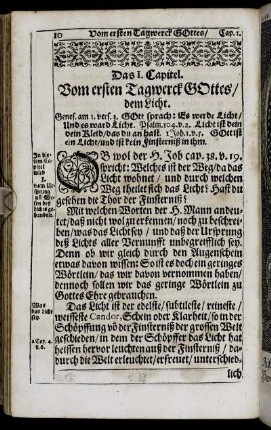 10 Vom ersten Tagwerck GOttes/ Cap. 1.
Das I. Capitel.
Vom ersten Tagwerck GOttes/
dem Licht.
Genes. am 1. vers. 3. GOtt sprach: Es werde Licht/
Und es ward Licht. Psalm. 104. v. 2. Licht ist dein
Kleid/ das du an hast. 1 Joh. 1. v. 5. GOtt ist
ein Licht/ und ist kein Finsterniß in ihm.
OB wol der H. Job cap. 38. v. 19.
spricht: Welches ist der Weg/ da das
Licht wohnet/ und durch welchen
Weg theilet sich das Licht? Hast du
gesehen die Thor der Finsterniß?
Mit welchen Worten der H. Mann andeu-
tet/ daß nicht wol zu erkennen/ noch zu beschrei-
ben/ was das Licht sey/ und daß der Ursprung
deß Lichts aller Vernunfft unbegreifflich sey.
Denn ob wir gleich durch den Augenschein
etwas davon wissen/ So ist es doch ein geringes
Wörtlein/ das wir davon vernommen haben/
dennoch sollen wir das geringe Wörtlein zu
Gottes Ehre gebrauchen.
Was
das Licht
sey.
Das Licht ist der edelste/ subtileste/ reineste/
weisseste Candor, Schein oder Klarheit/ so in der
Schöpffung von der Finsterniß der grossen Welt
geschieden/ in dem der Schöpffer das Licht hat
heissen hervor leuchten auß der Finsterniß/ da-
durch die Welt erleuchtet/ erfreuet/ unterschied-
lich